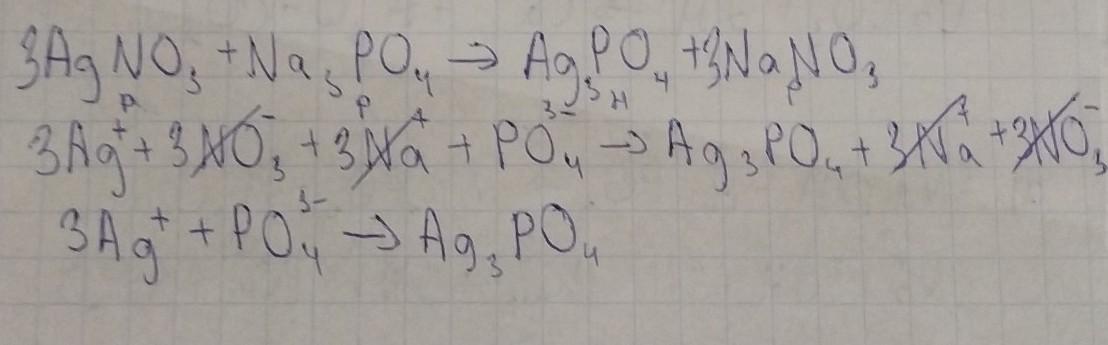 3AgNO₃ + Na₃PO₄ → Ag₃PO₄ + 3NaNO₃
р р н р
3Ag⁺ + 3NO₃⁻ + 3Na⁺ + PO₄³⁻ → Ag₃PO₄ + 3Na⁺ + 3NO₃⁻
3Ag⁺ + PO₄³⁻ → Ag₃PO₄